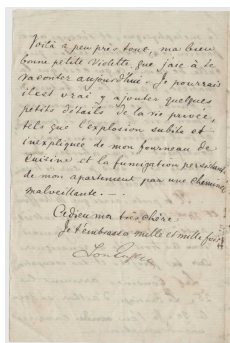 Voilà à peu près tout, ma bien
bonne petite Violette que j'aie à te
raconter aujourd'hui. Je pourrais
il est vrai y ajouter quelques
petits détails de la vie privée,
tels que l'explosion subite et
inexpliquée de mon fourneau de
cuisine et la fumigation persistante
de mon apartement par une cheminée
malveillante. —
Adieu ma très chère
Je t'embrasse mille et mille fois